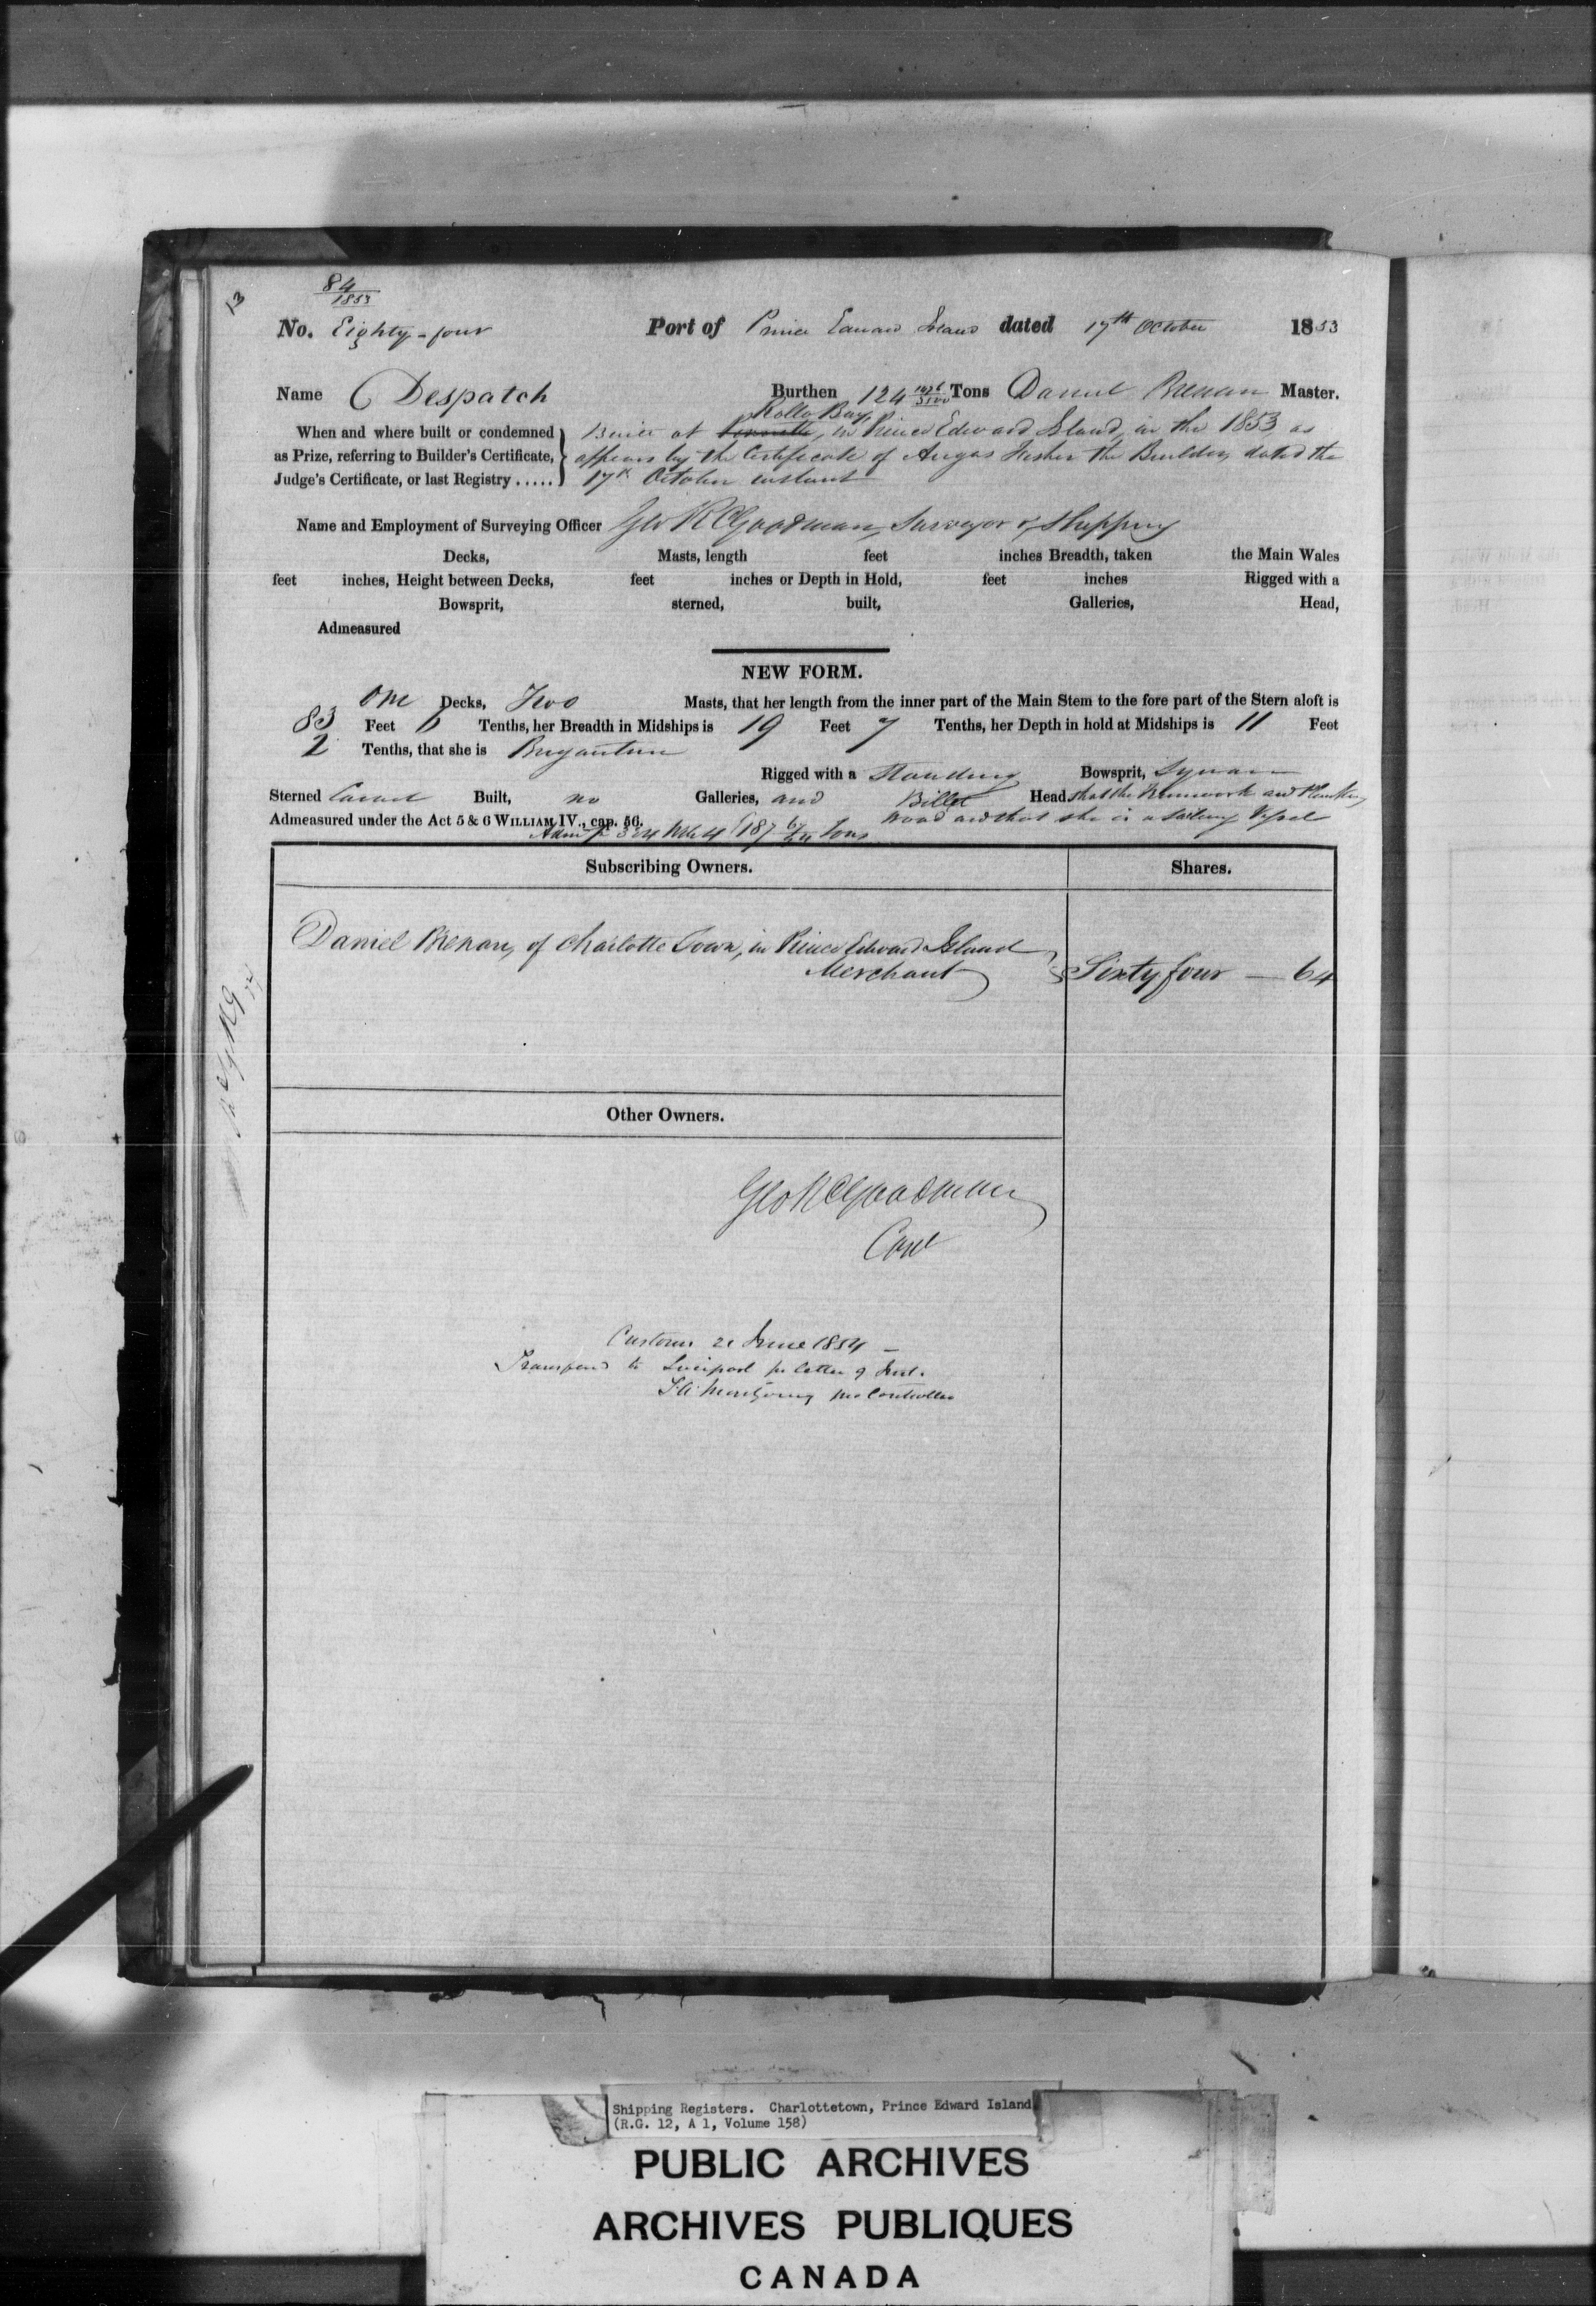 13
84
1853
No. Eighty-four Port of Prince Edward Island dated 17th October 1853
Name Despatch Burthen 124 1426/3500 Tons Daniel Brenan Master.
Rollo Bay,
When and where built or condemned Built at in Prince Edward Island, in the 1853, as
as Prize, referring to Builder's Certificate, appears by the Certificate of Angus Fisher the Builder, dated the
Judge's Certificate, or last Registry ..... 17th October instant
Name and Employment of Surveying Officer Geo R Goodman, Surveyor of Shipping
Decks, Masts, length feet inches Breadth, taken the Main Wales
feet inches, Height between Decks, feet inches or Depth in Hold, feet inches Rigged with a
Bowsprit, sterned, built, Galleries, Head,
Admeasured
NEW FORM.
One Decks, Two Masts, that her length from the inner part of the Main Stem to the fore part of the Stern aloft is
83 Feet 6 Tenths, her Breadth in Midships is 19 Feet 7 Tenths, her Depth in hold at Midships is 11 Feet
2 Tenths, that she is Brigantine
Rigged with a Standing Bowsprit, Square
Sterned Carvel Built, no Galleries, and Billet Head that the Framework and Planking
Admeasured under the Act 5 & 6 WILLIAM IV., cap. 56. Wood and that she is a Sailing Vessel
187 Tons
Subscribing Owners. Shares.
Daniel Brenan, of Charlotte Town, in Prince Edward Island
Merchant Sixty four — 64
Other Owners.
Geo R Goodman
Cont
Customs 21 June 1854 —
Transferred to Liverpool pr letter 9 Inst.
Montgomery pro Controller
Shipping Registers. Charlottetown, Prince Edward Island
(R.G. 12, A 1, Volume 158)
PUBLIC ARCHIVES
ARCHIVES PUBLIQUES
CANADA